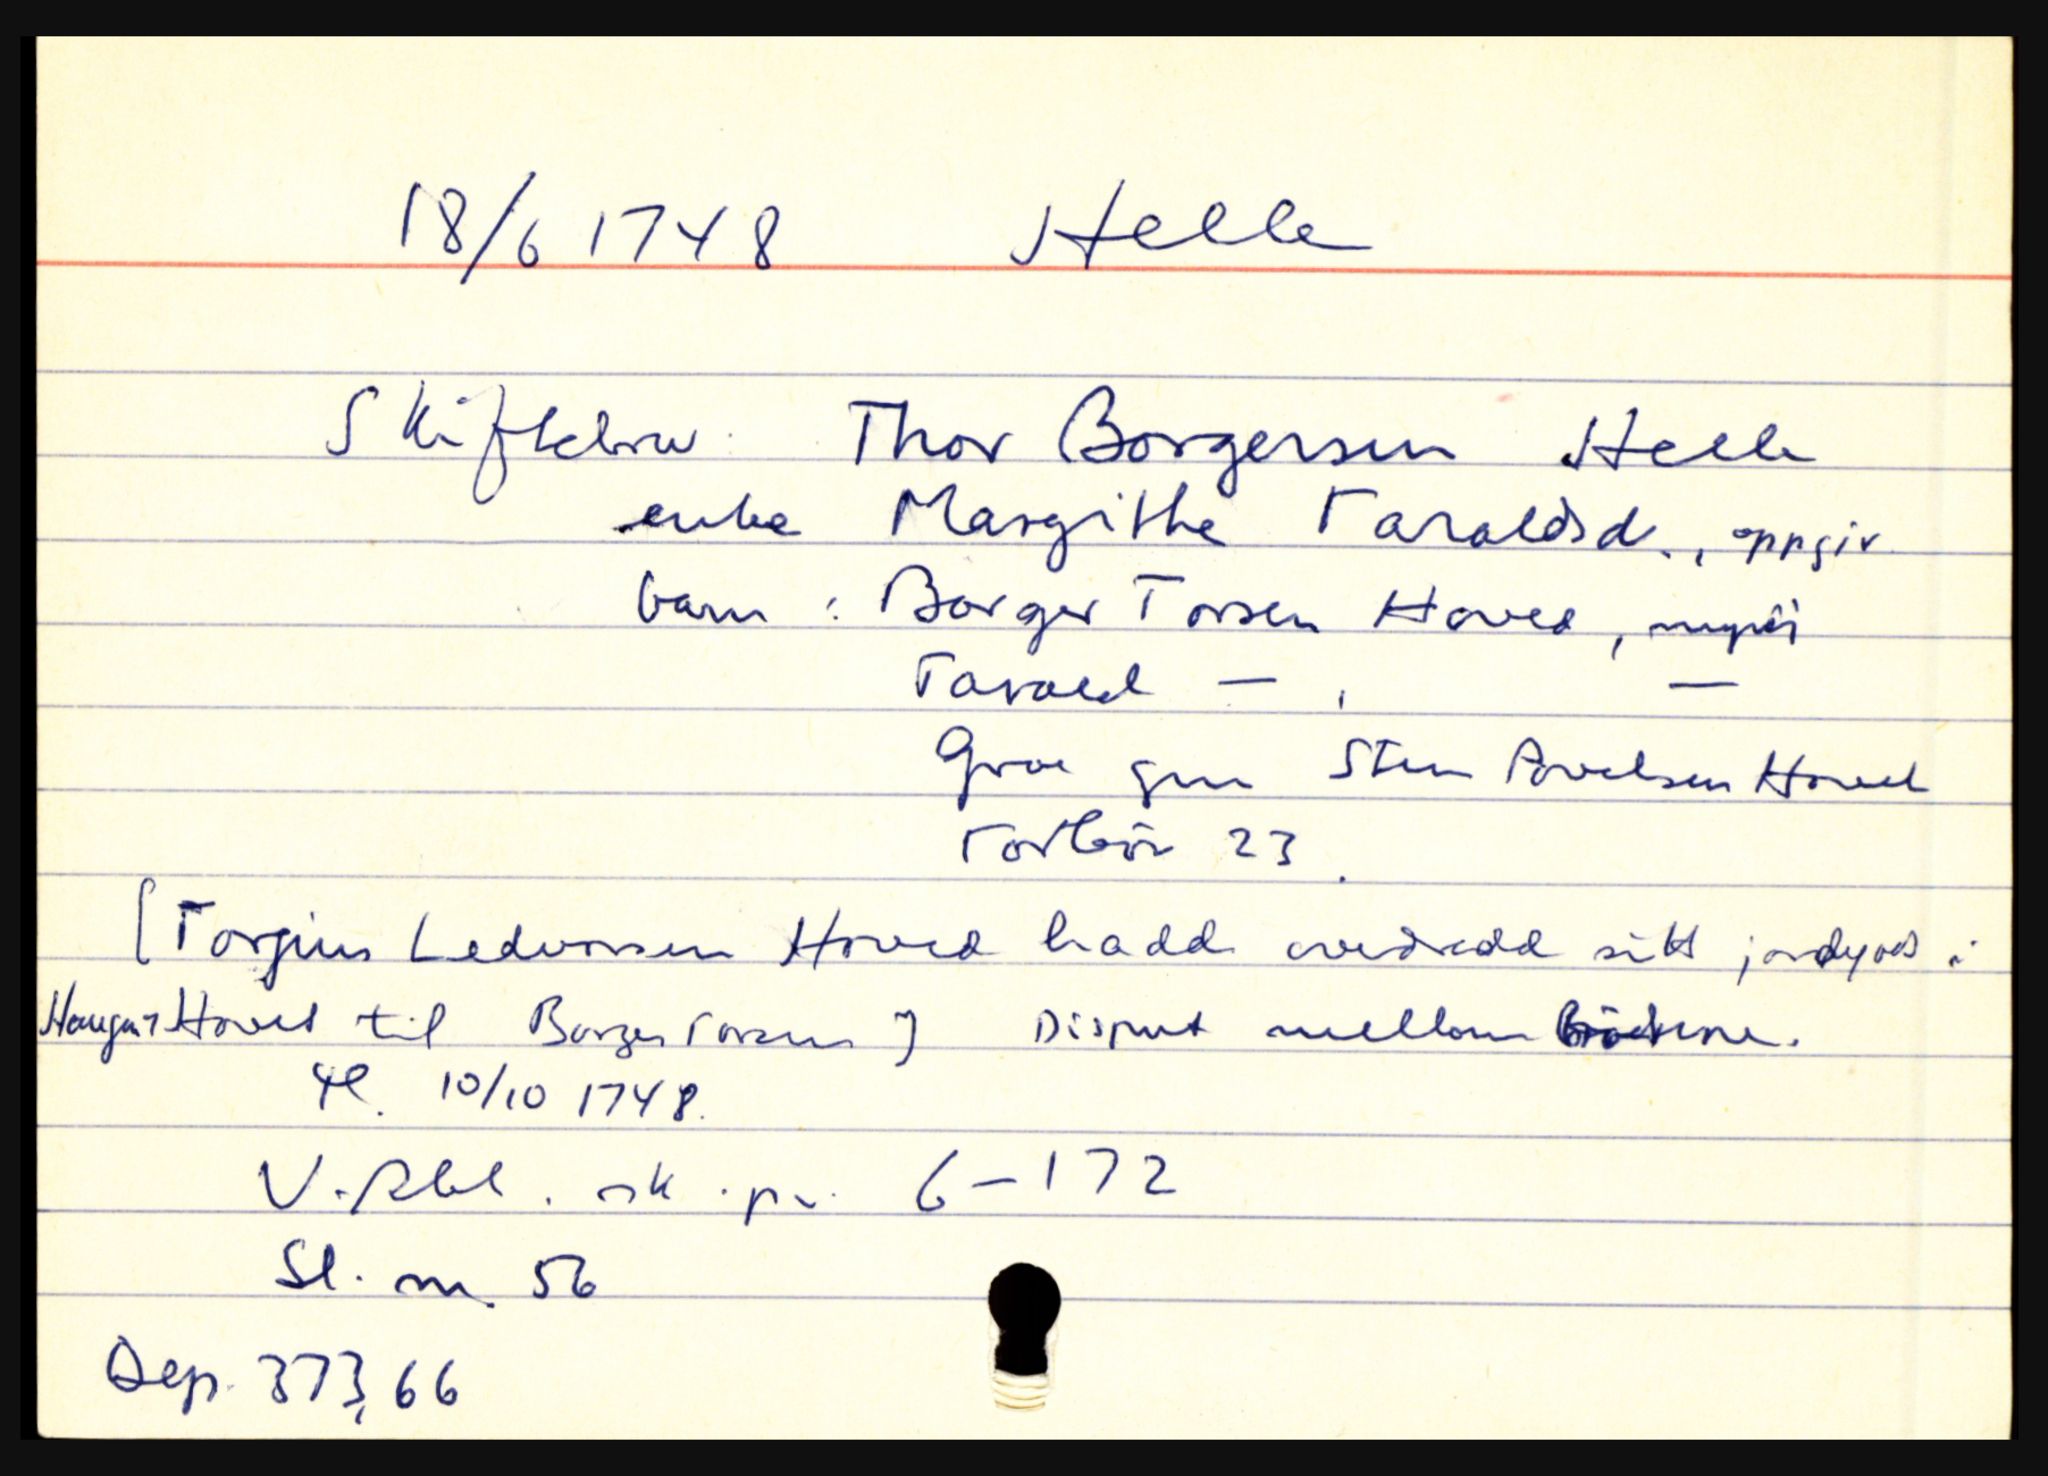 18/6 1748 Helle
Skiftebrev Thor Borgersen Helle
enke Margithe Taraldsd., oppgir
barn: Borger Torsen Hoved, myndi
Tarald — , —
Groe gm Sten Povelsen Hoved
Torbiør 23.
[Torgius Ledvorsen Hoved hadd overdradd sitt jordgods i
Haugen Hoved til Borger Torsen] Disput mellom brödrene.
10/10 1748.
V. Rbl. sk. pr. 6-172
Sl. m. 56
Dep. 373, 66